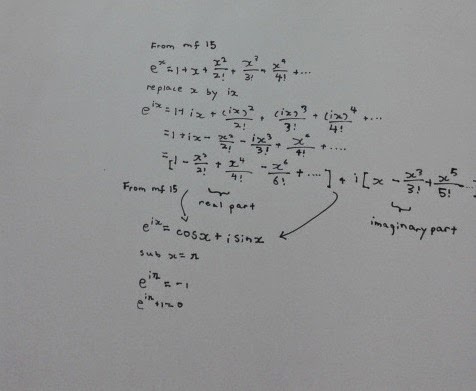 From mf 15
e^x = 1 + x + x²/2! + x³/3! + x⁴/4! + ...
replace x by ix
e^ix = 1 + ix + (ix)²/2! + (ix)³/3! + (ix)⁴/4! + ...
= 1 + ix - x²/2! - ix³/3! + x⁴/4! + ....
= [1 - x²/2! + x⁴/4! - x⁶/6! + ....] + i[x - x³/3! + x⁵/5! ...]
From mf 15
real part
imaginary part
e^ix = cosx + i sinx
sub x = π
e^iπ = -1
e^iπ + 1 = 0